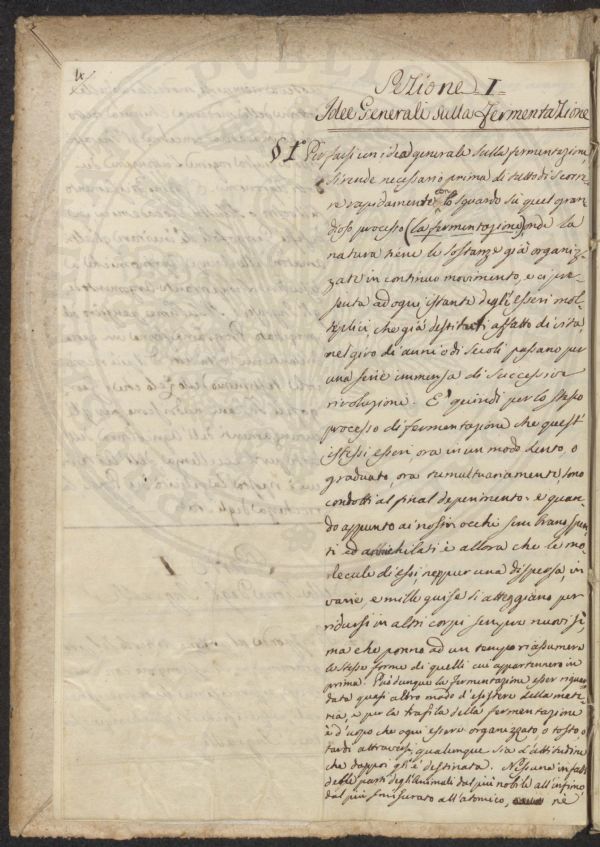 Lezione I
Idee Generali sulla Fermentazione
§ 1° Per farsi un'idea generale sulla fermentazione,
si rende necessario prima di tutto di scorre-
re rapidamente con lo sguardo su quel gran-
dioso processo (la fermentazione) onde la
natura tiene le sostanze già organiz-
zate in continuo movimento, e ci pre-
senta ad ogni istante degli esseri mol-
teplici che già destituti affatto di vita,
nel giro di anni o di secoli passano per
una serie immensa di successive
rivoluzioni. E' quindi per lo stesso
processo di fermentazione che quest'
istessi esseri ora in un modo lento, o
graduato, ora tumultuariamente, sono
condotti al final deperimento: e quan-
do appunto ai nostri occhi sembrano spen-
ti ed annichilati è allora che le mo-
lecule di essi, neppur una dispersa, in
varie, e mille guise si atteggiano per
ridursi in altri corpi sempre nuovi sì,
ma che ponno ad un tempo riassumere
le stesse forme di quelli cui appartennero in
prima. Può dunque la fermentazione esser riguar-
data quasi altro modo d'esistere della mate-
ria, e per la trafila della fermentazione
è d'uopo che ogni essere organizzato o tosto o
tardi attraversi, qualunque sia l'attitudine
che dappoi gli è destinata. Nessuna infatti
delle parti degli animali dal più nobile all'infimo,
dal più smisurato all'atomico, ne